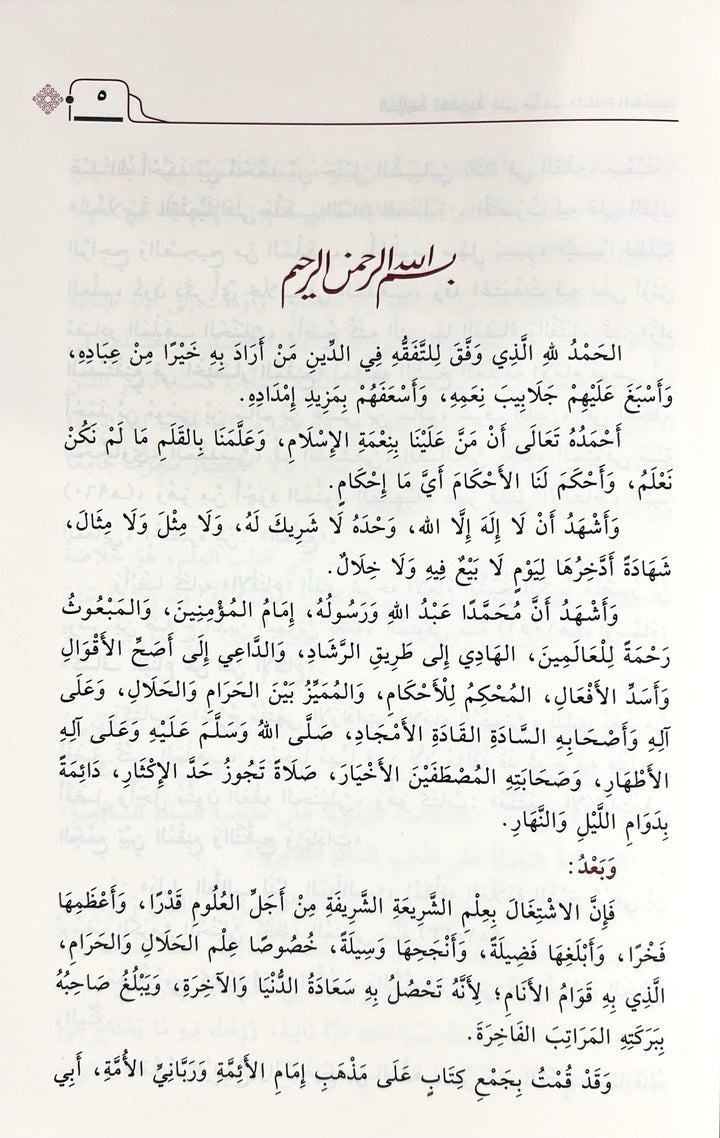 ٥
بسم الله الرحمن الرحيم
الحَمْدُ للهِ الَّذِي وَفَّقَ لِلتَّفَقُّهِ فِي الدِّينِ مَنْ أَرَادَ بِهِ خَيْرًا مِنْ عِبَادِهِ،
وَأَسْبَغَ عَلَيْهِمْ جَلَابِيبَ نِعَمِهِ، وَأَسْعَفَهُمْ بِمَزِيدِ إِمْدَادِهِ.
أَحْمَدُهُ تَعَالَى أَنْ مَنَّ عَلَيْنَا بِنِعْمَةِ الإِسْلَامِ، وَعَلَّمَنَا بِالقَلَمِ مَا لَمْ نَكُنْ
نَعْلَمُ، وَأَحْكَمَ لَنَا الأَحْكَامَ أَيَّ مَا إِحْكَامٍ.
وَأَشْهَدُ أَنْ لَا إِلَهَ إِلَّا الله، وَحْدَهُ لَا شَرِيكَ لَهُ، وَلَا مِثْلَ وَلَا مِثَالَ،
شَهَادَةً أَدَّخِرُهَا لِيَوْمٍ لَا بَيْعٌ فِيهِ وَلَا خِلَالٌ.
وَأَشْهَدُ أَنَّ مُحَمَّدًا عَبْدُ اللهِ وَرَسُولُهُ، إِمَامُ المُؤْمِنِينَ، وَالمَبْعُوثُ
رَحْمَةً لِلْعَالَمِينَ، الهَادِي إِلى طَرِيقِ الرَّشَادِ، وَالدَّاعِي إِلَى أَصَحِّ الأَقْوَالِ
وَأَسَدِّ الأَفْعَالِ، المُحْكِمُ لِلْأَحْكَامِ، وَالمُمَيِّزُ بَيْنَ الحَرَامِ وَالحَلَالِ، وَعَلَى
آلِهِ وَأَصْحَابِهِ السَّادَةِ القَادَةِ الأَمْجَادِ، صَلَّى اللهُ وَسَلَّمَ عَلَيْهِ وَعَلَى آلِهِ
الأَطْهَارِ، وَصَحَابَتِهِ المُصْطَفَيْنَ الأَخْيَارَ، صَلَاةً تَجُوزُ حَدَّ الإِكْثَارِ، دَائِمَةً
بِدَوَامِ اللَّيْلِ وَالنَّهَارِ.
وَبَعْدُ:
فَإِنَّ الاشْتِغَالَ بِعِلْمِ الشَّرِيعَةِ الشَّرِيفَةِ مِنْ أَجَلِّ العُلُومِ قَدْرًا، وَأَعْظَمِهَا
فَخْرًا، وَأَبْلَغِهَا فَضِيلَةً، وَأَنْجَحِهَا وَسِيلَةً، خُصُوصًا عِلْمِ الحَلَالِ وَالحَرَامِ،
الَّذِي بِهِ قَوَامُ الأَنَامِ؛ لِأَنَّهُ تَحْصُلُ بِهِ سَعَادَةُ الدُّنْيَا وَالآخِرَةِ، وَيَبْلُغُ صَاحِبُهُ
بِبَرَكَتِهِ المَرَاتِبَ الفَاخِرَةَ.
وَقَدْ قُمْتُ بِجَمْعِ كِتَابٍ عَلَى مَذْهَبِ إِمَامِ الأَئِمَّةِ وَرَبَّانِيِّ الأُمَّةِ، أَبِي